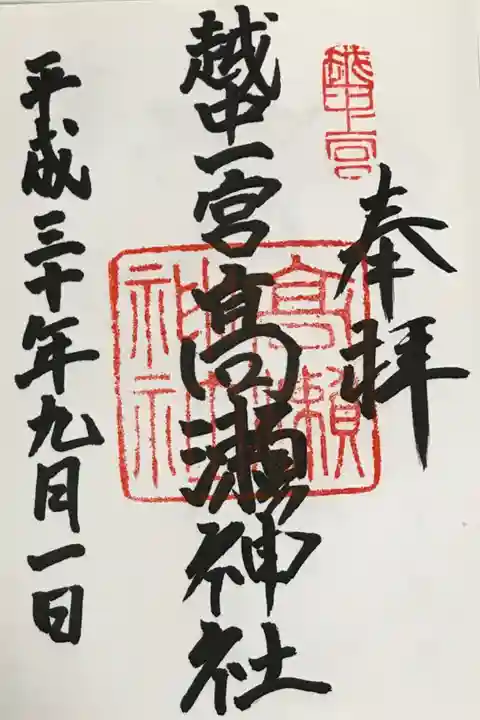 越中一宮
奉拝
越中一宮髙瀬神社
平成三十年九月一日